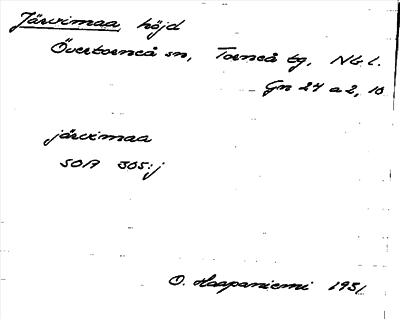 Järvimaa, höjd
Övertorneå sn, Torneå tg, Nb l.
Gn 24 a 2, 10
järvimaa
SOA 305:j
O. Haapaniemi 1931